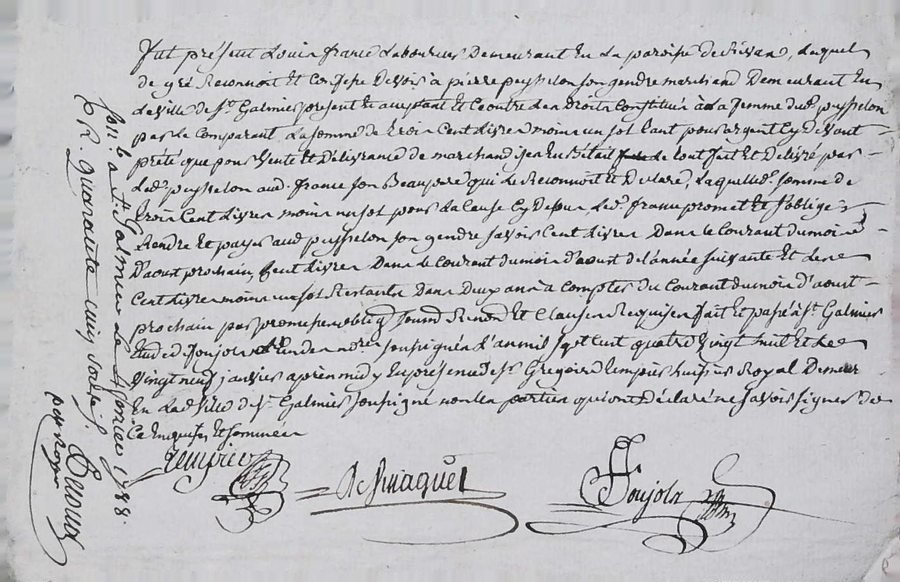 fut présent Louis france Laboureur Demeurant En La paroisse de Rivas, Lequel
de gré Reconnoit Et Confesse Devoir à pierre peysselon son gendre marchand Demeurant En
La ville de St. Galmier present Et acceptant Et Ce outre des Droits Constitués à sa femme du. peysselon
par Le Comparant La somme de trois Cent Livres moins un sol tant pour argent Cy devant
prété que pour vente Et Délivrance de marchandises En Détail de tout fait Et Délivré par
Led. peysselon aud. france son Beaupere qui Le Reconnoit Et Déclare, Laquelle de. somme de
trois Cent Livres moins un sol pour La Cause Cy Dessus, Led. france promet Et s'oblige
Rendre Et payer aud peysselon son gendre savoir Cent Livres Dans le Courant du mois
D'aout prochain, Cent Livres Dans le Courant du mois d'aout de L'année suivante Et Les
Cent Livres moins un sol Restants Dans Deux ans à Compter du Courant du mois d'aout
prochain par promesse oblig Soum Renon Et Clauses Requises fait Et passé à St. Galmier
Etude Joujola L'un des nres. soussignés L'an mil sept cent quatre vingt huit Et Le
vingt neuf janvier après midy En présence de Sr. Gregoire tempier huissier Royal Demeur
En Lad. ville de St. Galmier soussigné non Les parties qui ont Déclaré ne savoir signer de
Ce Enquises Et sommées
tempier
Joujola
Con. à St. Galmier Le 4 fevrier 1788.
R. quarante cinq sols